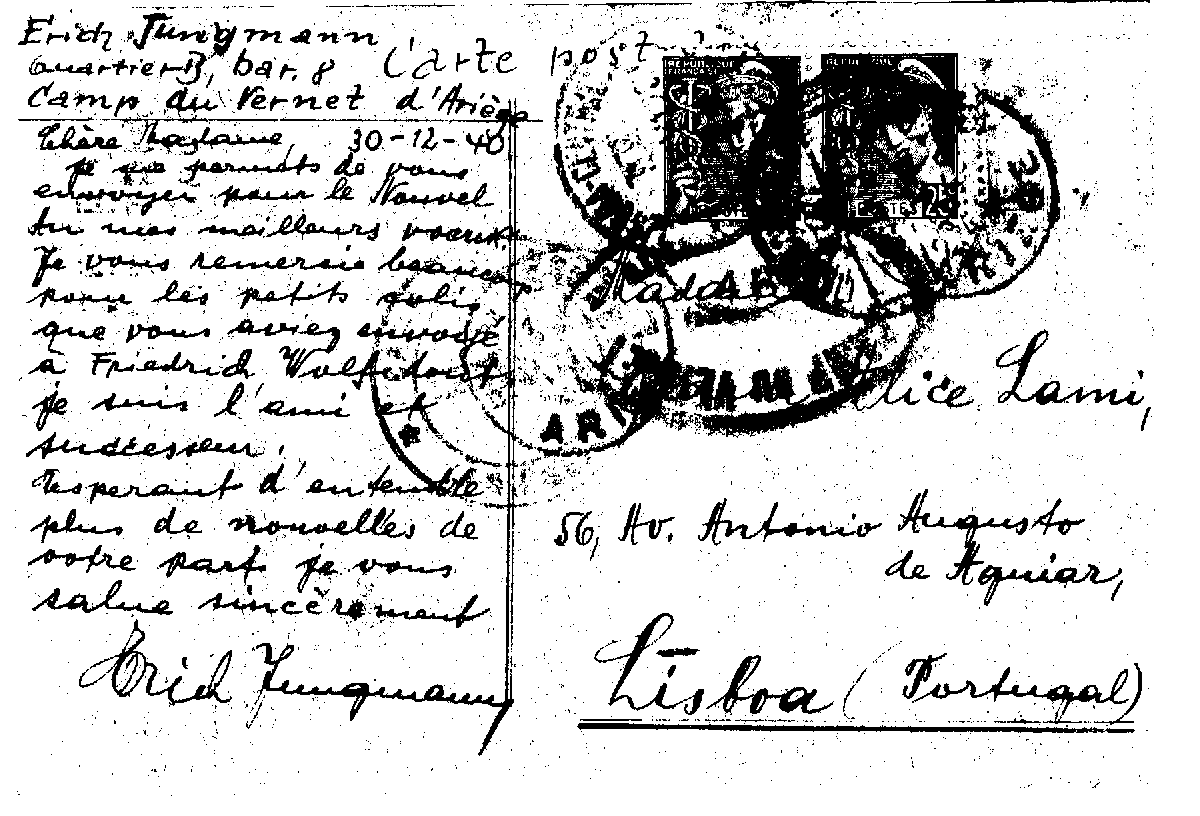 Erich Jungmann
Quartier B, bar. 8
Camp du Vernet d'Ariège
Carte postale
REPUBLIQUE
FRANÇAISE
REPUBLIQUE
Chère Madame, 30-12-40
je me permets de vous
envoyer pour le Nouvel
An mes meilleurs voeux.
Je vous remercie beaucoup
pour les petits colis,
que vous aviez envoyé
à Friedrich Wolf dont
je suis l'ami et
successeur.
Esperant d'entendre
plus de nouvelles de
votre part je vous
salue sincèrement
Erich Jungmann
Madame
Alice Lami,
56, Av. Antonio Augusto
de Aguiar,
Lisboa (Portugal)